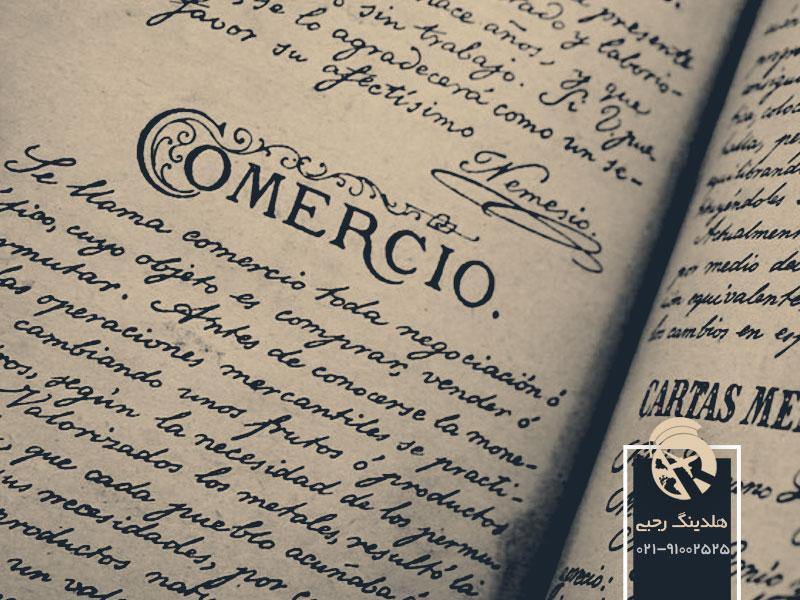 presente
rado y laborio-
hace años, y que
se lo sin trabajo. Si V. pue
favor su agradecerá como un se-
afectísimo
Nemesio.
COMERCIO.
Se llama comercio toda negociación ó
tfico, cuyo objeto es comprar, vender ó
rmutar. Antes de conocerse la mone-
las operaciones mercantiles se practi-
cambiando unos frutos ó productos
ros, según la necesidad de los permu
Valorizados los metales, resultó la
que cada pueblo acuñaba
sus necesidades, por
productos
un
equilibrand
Actualmen
por medio de
equivalente
los cambios en esp
CARTAS ME
هلدینگ رجبی
۰۲۱-۹۱۰۰۲۵۲۵